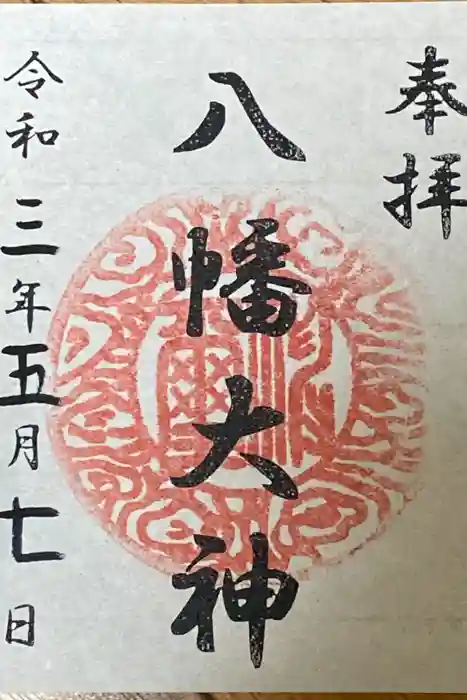 奉拝
八幡大神
令和三年五月七日